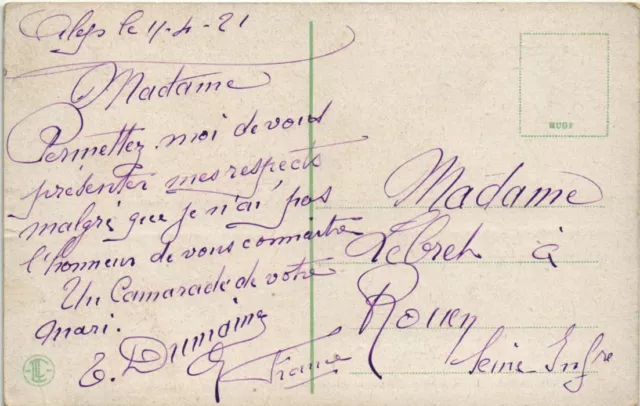 Alep le 11-4-21
Madame
Permettez moi de vous
présenter mes respects
malgré que je n'ai pas
l'honneur de vous connaitre
Un Camarade de votre
mari.
E. Dumaine
Madame
Lebret à
Rouen
Seine Infre
France